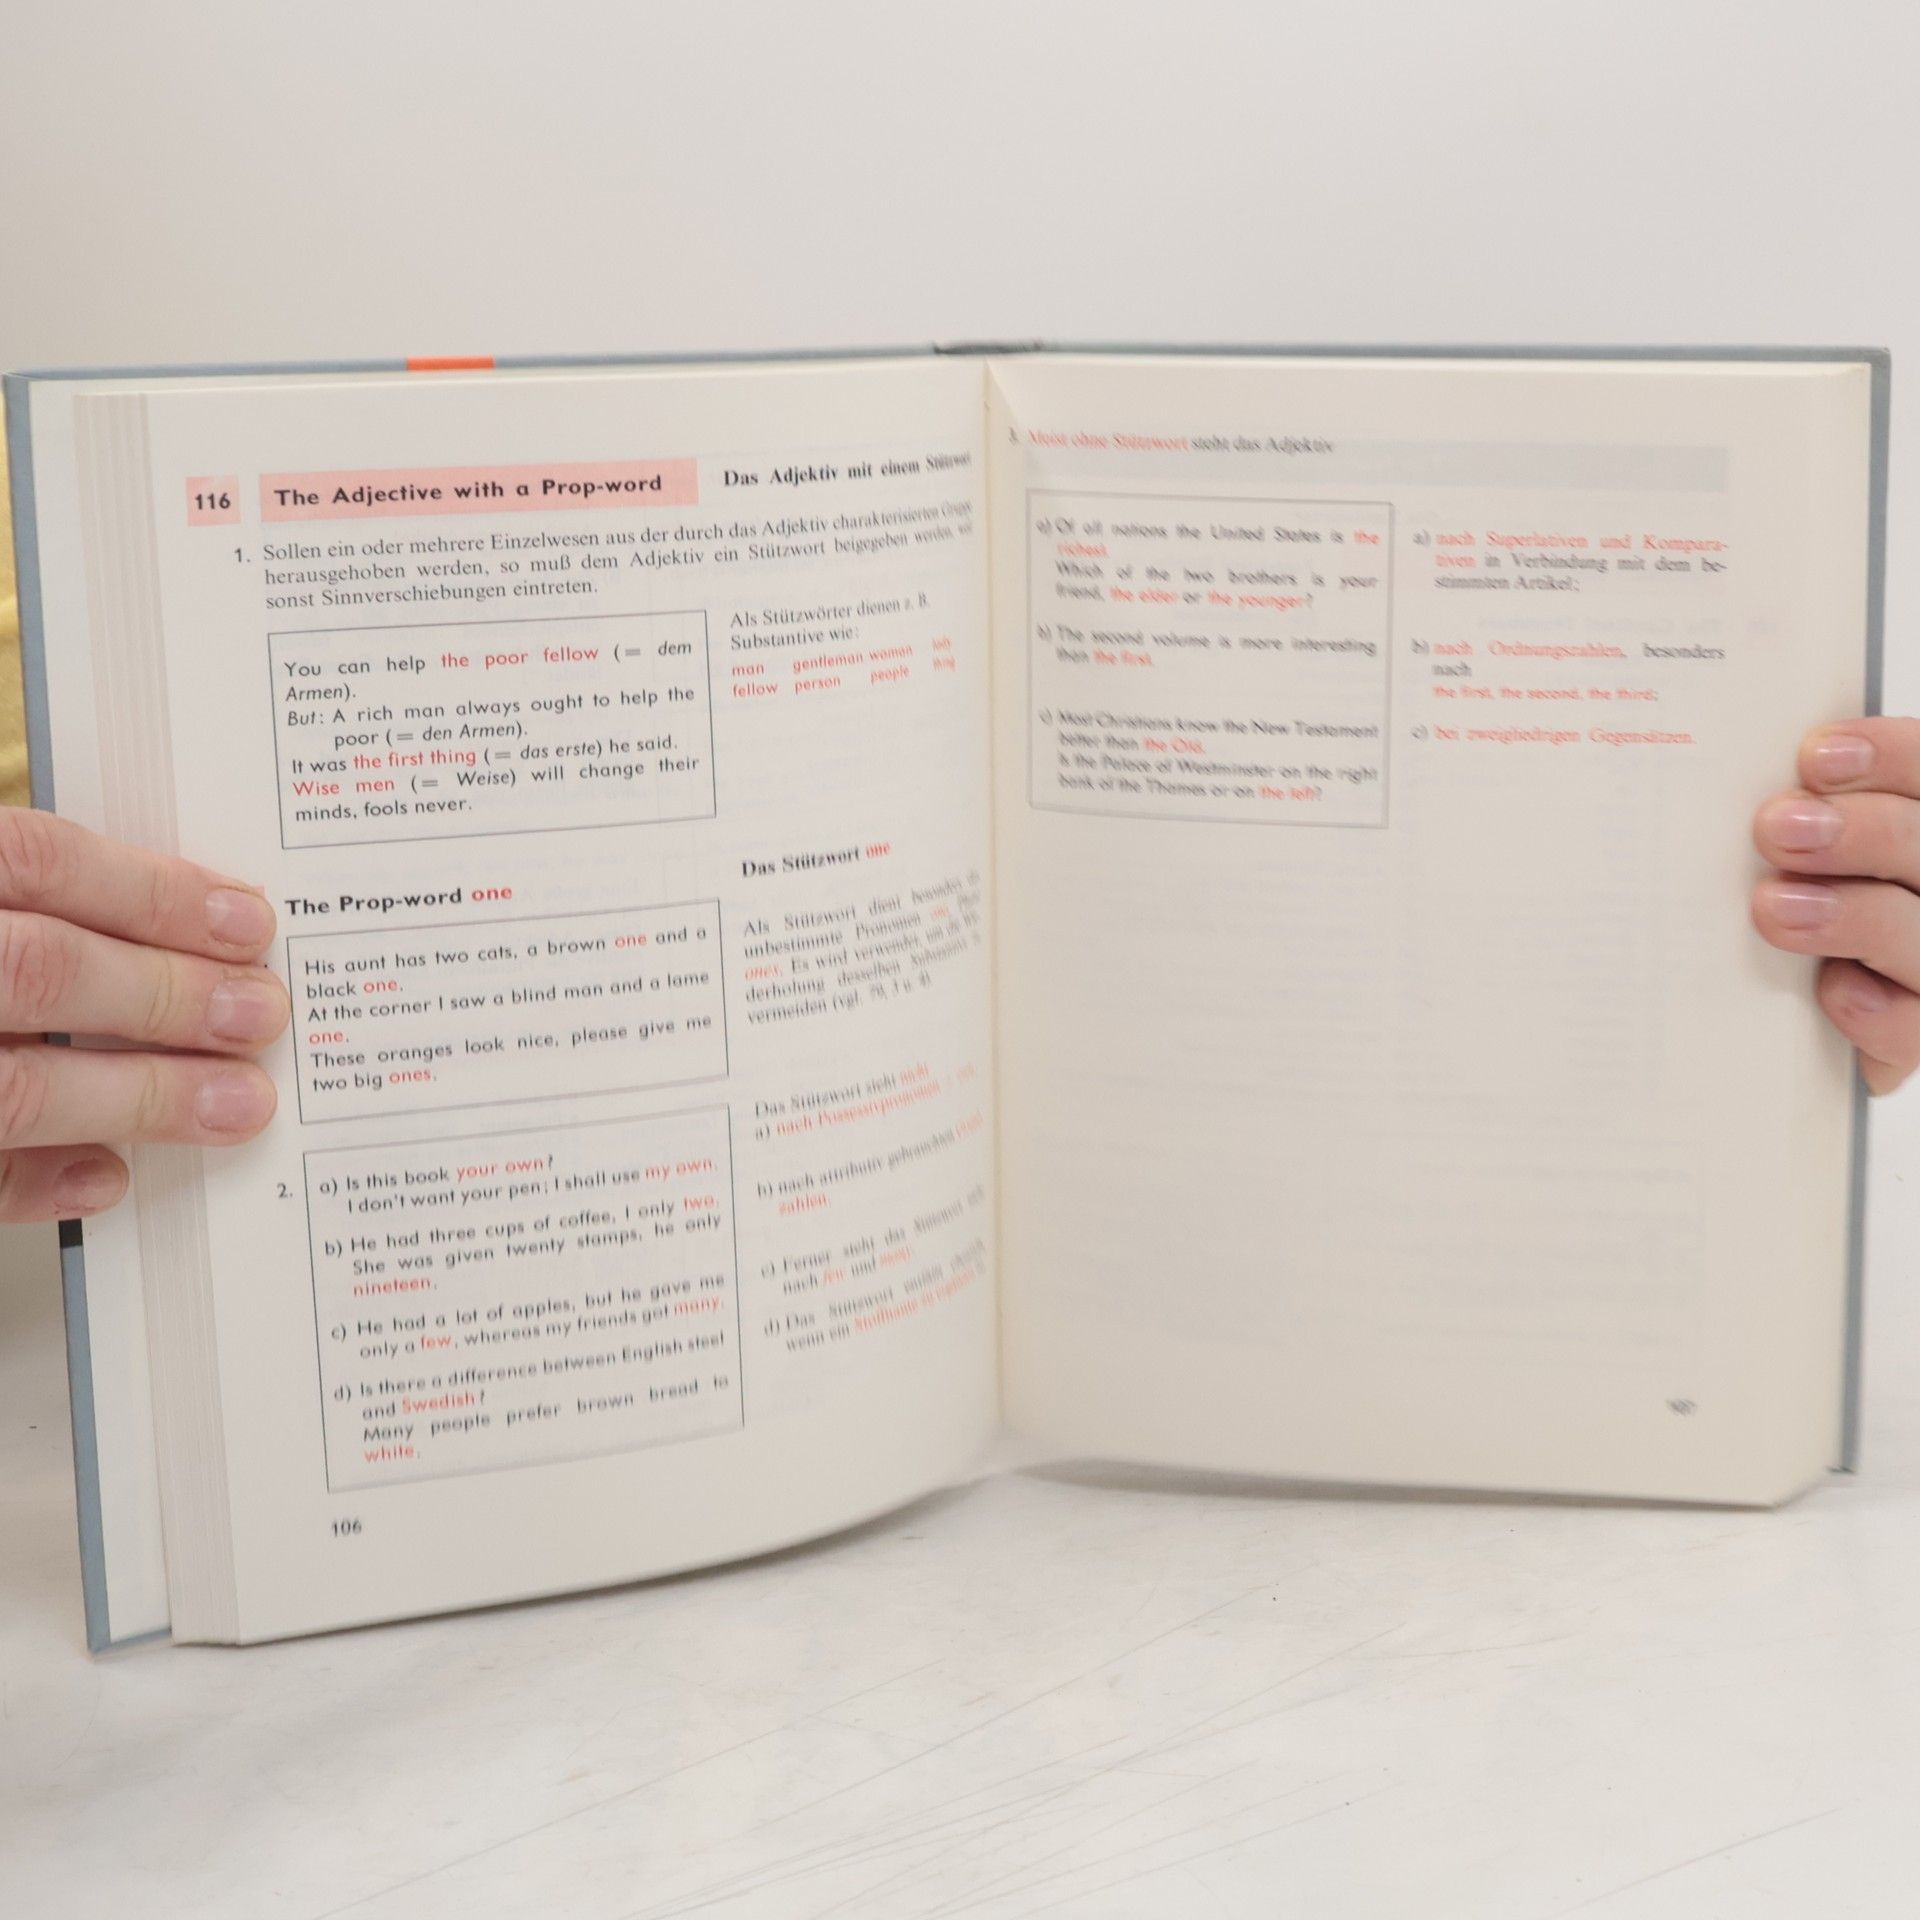 116 The Adjective with a Prop-word
Das Adjektiv mit einem
1. Sollen ein oder mehrere Einzelwesen aus der durch das Adjektiv charakterisierten
herausgehoben werden, so muß dem Adjektiv ein Stützwort beigegeben werden
sonst Sinnverschiebungen eintreten.
You can help the poor fellow (= dem
Armen).
But: A rich man always ought to help the
poor (= den Armen).
It was the first thing (= das erste) he said.
Wise men (= Weise) will change their
minds, fools never.
Als Stützwörter dienen z. B.
Substantive wie:
man gentleman woman
fellow person people
The Prop-word one
Das Stützwort one
His aunt has two cats, a brown one and a
black one.
At the corner I saw a blind man and a lame
one.
These oranges look nice, please give me
two big ones.
Als Stützwort dient besonders
unbestimmte Pronomen
ones. Es wird verwendet, um
derholung desselben
vermeiden (vgl.
2. a) Is this book your own?
I don't want your pen; I shall use my own.
b) He had three cups of coffee, I only two.
She was given twenty stamps, he only
nineteen.
c) He had a lot of apples, but he gave me
only a few, whereas my friends got many.
d) Is there a difference between English steel
and Swedish?
Many people prefer brown bread to
white.
Das Stützwort steht nicht
a) nach Possessivpronomen
b) nach attributiv gebrauchten
zahlen.
c) Ferner steht das Stützwort
nach few und many.
d) Das Stützwort
wenn ein Stoffname
106
3. Meist ohne Stützwort steht das Adjektiv
a) Of all nations the United States is the
richest.
Which of the two brothers is your
friend, the elder or the younger?
b) The second volume is more interesting
than the first.
c) Most Christians know the New Testament
better than the Old.
Is the Palace of Westminster on the right
bank of the Thames or on the left?
a) nach Superlativen und Kompara-
tiven in Verbindung mit dem be-
stimmten Artikel;
b) nach Ordnungszahlen, besonders
nach
the first, the second, the third;
c) bei zweigliedrigen Gegensätzen.